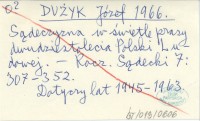 O²
DUŻYK Józef 1966.
Sądeczyzna w świetle prasy
dwudziestolecia Polski Lu-
dowej. – Rocz. Sądecki 7:
307–352.
Dotyczy lat 1945–1963.